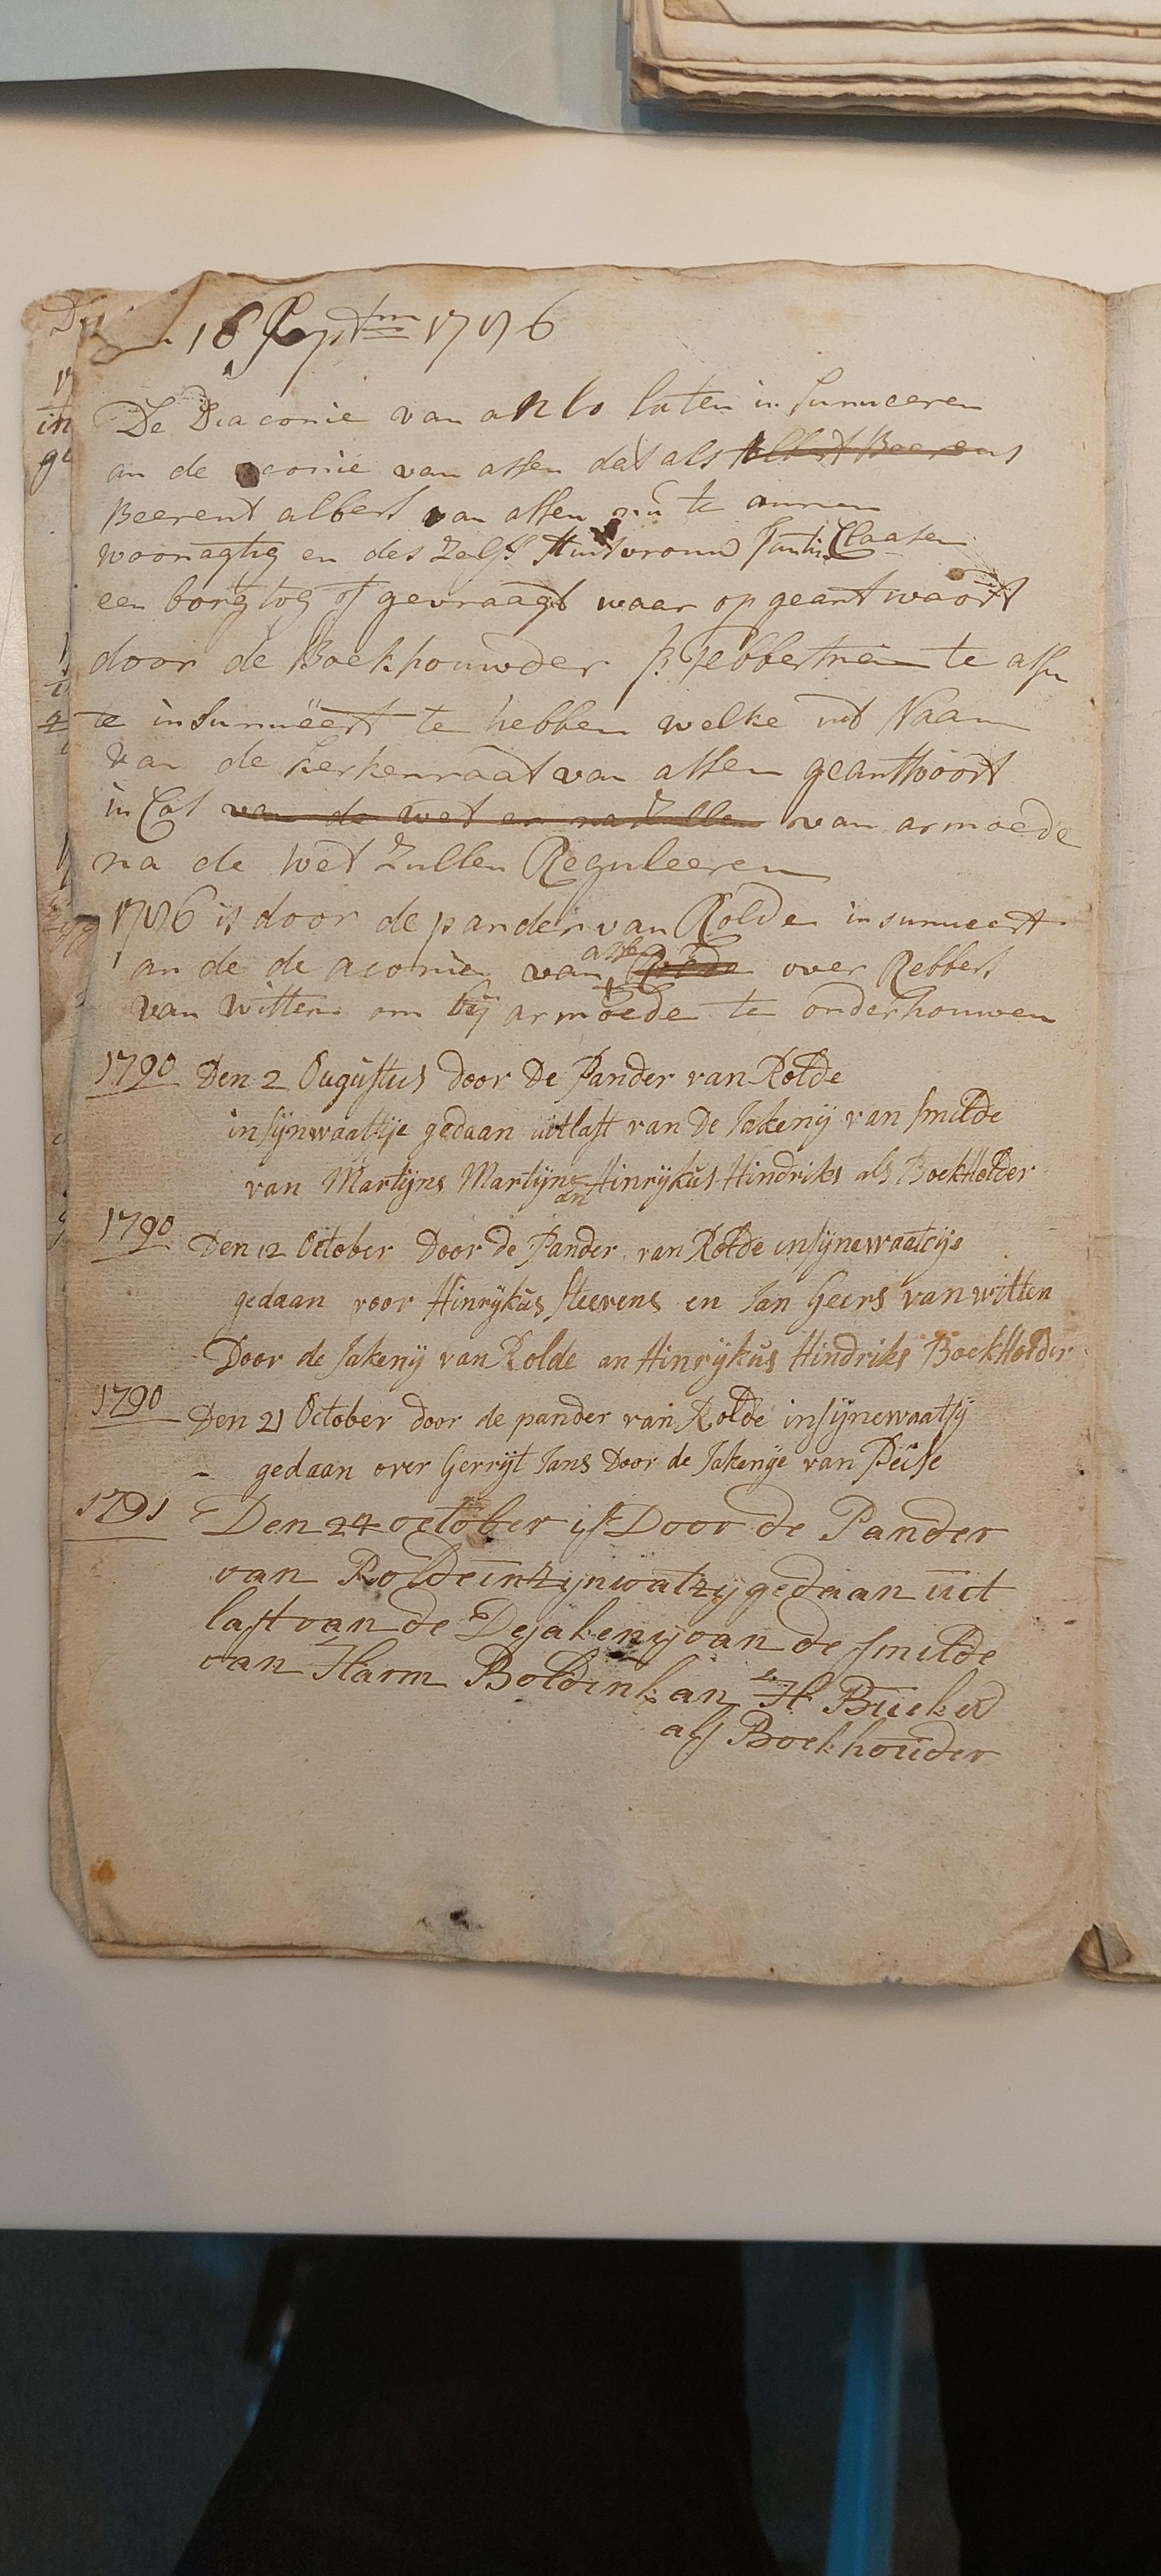 18 Septm 1786
De Diaconie van anlo laten insinueeren
an de aconie van assen dat als Albert Beerens
Beerent albert van assen nu te annen
woonagtig en des Zelfs Huisvrouw Claasen
een borgtog of gevraagt waar op geantwoort
door de Boekhouwder te assen
te insinuëert te hebben welke uit Naam
van de kerkenraat van assen geantwoort
in Cas van de wet en na Zullen van armoede
na de wet Zullen Reguleeren
1786 is door de pander van Rolde insinueert
an de de aconie van assen Rolde over Rebbert
van witten om bij armoede te onderhouwen
1790 Den 2 Ougustus door De Pander van Rolde
insijnwaatsje gedaan uit last van De Jakenij van smilde
van Martijns Martijns an Hinrijkus Hindriks als BoekHolder
1790 Den 12 October Door de Pander van Rolde insijnewaatsije
gedaan voor Hinrijkus Steevens en Jan Geers van witten
Door de Jakenij van Rolde an Hinrijkus Hindriks BoekHolder
1790 Den 21 October door de pander van Rolde insijnewaatsij
gedaan over Gerrijt Jans Door de Jakenije van Peise
1791 Den 24 october is Door de Pander
van Rolde inzijnwatzij gedaan uit
last van de Dejakenij van de smilde
van Harm Boldink an H Bueker
als Boekhouder